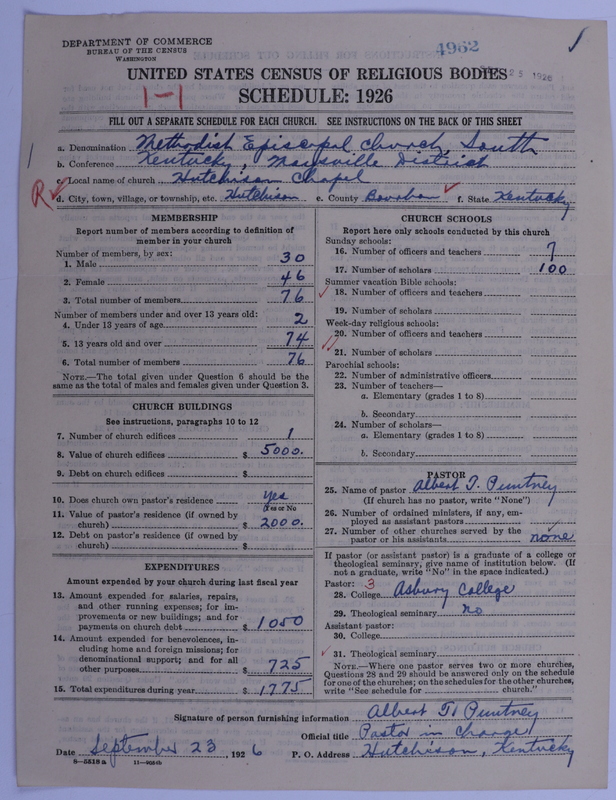 DEPARTMENT OF COMMERCE
BUREAU OF THE CENSUS
WASHINGTON
4962
25 1926
UNITED STATES CENSUS OF RELIGIOUS BODIES
1-1
SCHEDULE: 1926
FILL OUT A SEPARATE SCHEDULE FOR EACH CHURCH. SEE INSTRUCTIONS ON THE BACK OF THIS SHEET
a. Denomination Methodist Episcopal Church, South
b. Conference Kentucky, Maysville District
c. Local name of church Hutchison Chapel
R
d. City, town, village, or township, etc. Hutchison e. County Bourbon f. State Kentucky
MEMBERSHIP
Report number of members according to definition of
member in your church
Number of members, by sex:
1. Male 30
2. Female 46
3. Total number of members 76
Number of members under and over 13 years old:
4. Under 13 years of age 2
5. 13 years old and over 74
6. Total number of members 76
NOTE.—The total given under Question 6 should be the
same as the total of males and females given under Question 3.
CHURCH BUILDINGS
See instructions, paragraphs 10 to 12
7. Number of church edifices 1
8. Value of church edifices $ 5000.
9. Debt on church edifices $
10. Does church own pastor's residence yes
Yes or No
11. Value of pastor's residence (if owned by
church) $ 2000.
12. Debt on pastor's residence (if owned by
church) $
EXPENDITURES
Amount expended by your church during last fiscal year
13. Amount expended for salaries, repairs,
and other running expenses; for im-
provements or new buildings; and for
payments on church debt $ 1050
14. Amount expended for benevolences, in-
cluding home and foreign missions; for
denominational support; and for all
other purposes $ 725
15. Total expenditures during year $ 1775
CHURCH SCHOOLS
Report here only schools conducted by this church
Sunday schools:
16. Number of officers and teachers 7
17. Number of scholars 100
Summer vacation Bible schools:
18. Number of officers and teachers
19. Number of scholars
Week-day religious schools:
20. Number of officers and teachers
21. Number of scholars
Parochial schools:
22. Number of administrative officers
23. Number of teachers—
a. Elementary (grades 1 to 8)
b. Secondary
24. Number of scholars—
a. Elementary (grades 1 to 8)
b. Secondary
PASTOR
25. Name of pastor Albert T. Puntney
(If church has no pastor, write "None")
26. Number of ordained ministers, if any, em-
ployed as assistant pastors
27. Number of other churches served by the
pastor or his assistants none
If pastor (or assistant pastor) is a graduate of a college or
theological seminary, give name of institution below. (If
not a graduate, write "No" in the space indicated.)
Pastor: 3
28. College Asbury College
29. Theological seminary no
Assistant pastor:
30. College
31. Theological seminary
NOTE.—Where one pastor serves two or more churches,
Questions 28 and 29 should be answered only on the schedule
for one of the churches; on the schedules for the other churches,
write "See schedule for church."
Signature of person furnishing information Albert T. Puntney
Official title Pastor in Charge
Date September 23, 1926 P. O. Address Hutchison, Kentucky
8—5518 a 11—9084b